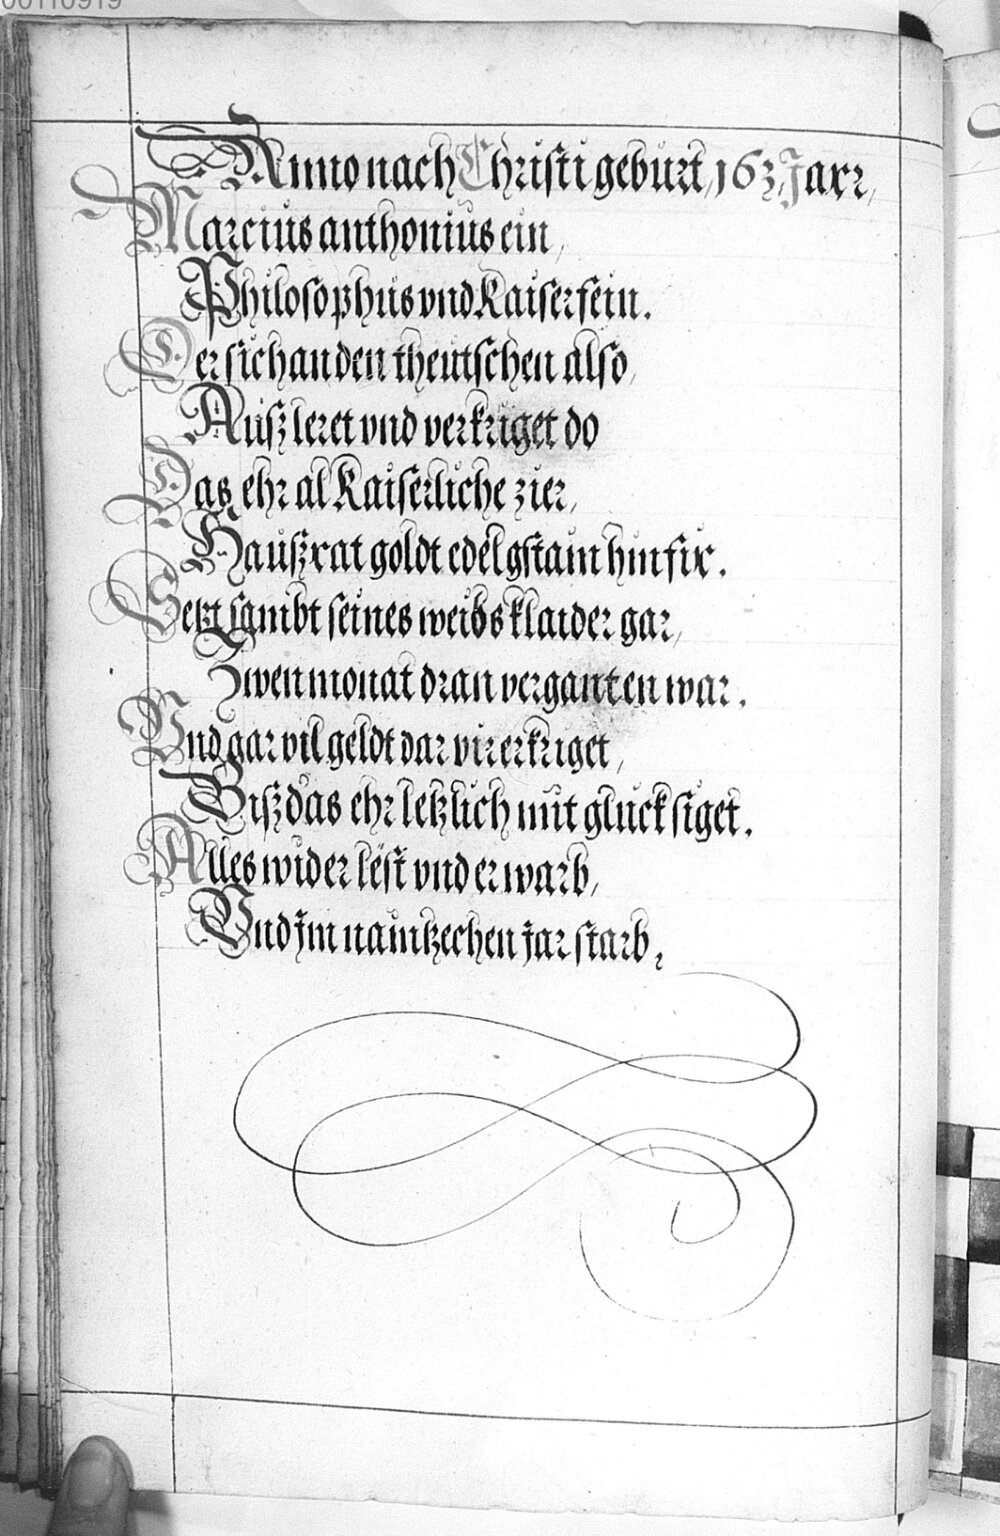 00110919
Anno nach Christi geburt, 163, Jarr,
Marcius anthonius ein,
Philosophus vnd Kaiser fein.
Der sich an den theutschen also,
Außleret vnd verkriget do
Das ehr al Kaiserliche zier,
Haußrat goldt edelgstain hinfir.
Setzt sambt seines weibs klaider gar,
Zwen monat dran verganten war.
Vnd gar vil geldt dar vir erkriget,
Biß das ehr letzlich mit gluck siget.
Alles wider lest vnd er warb,
Vnd Jm naintzechen jar starb,